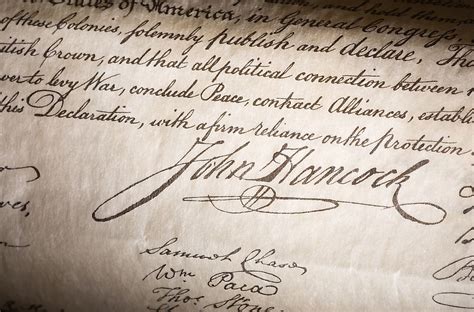 States of America, in General Congress,
of these Colonies, solemnly publish and declare, Tha
itish Crown, and that all political connection between
er to levy War, conclude Peace, contract Alliances, establis
this Declaration, with a firm reliance on the protection
John Hancock
Samuel Chase
Wm Paca
Thos Stone